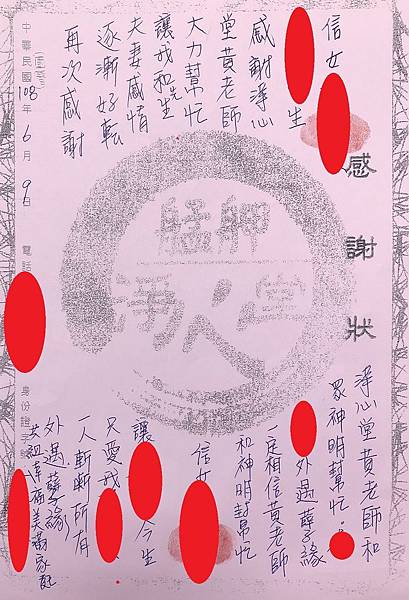 感謝狀
信女
生
感謝淨心
堂黃老師
大力幫忙
讓我和先生
夫妻感情
逐漸好転
再次感謝
中華民國108年6月9日
電話
身份證字號
艋舺
淨心堂
淨心堂黃老師和
眾神明幫忙。
外遇孽緣
一定相信黃老師
和神明幫忙
信女
讓
今生
只愛我
一人斬斷所有
外遇孽緣
共組幸福美滿家庭